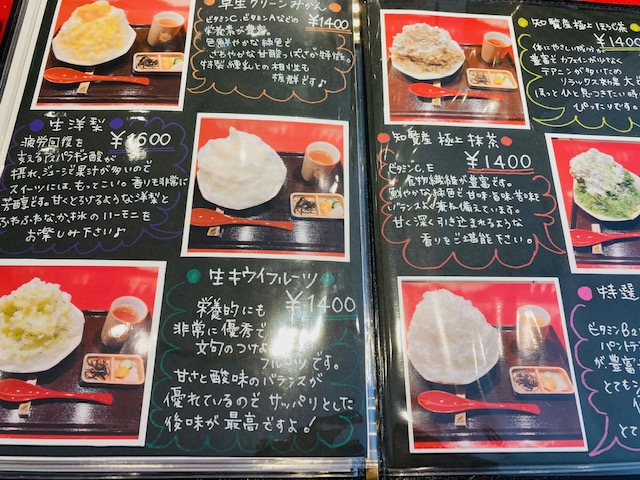 早生グリーンみかん
ビタミンC、ビタミンAなどの
¥1400
栄養素が豊富。
色鮮やかな緑色で
さわやかな甘酸っぱさが特徴。
特製練乳との相性も
抜群です♪
生洋梨
¥1600
疲労回復を
支えるアスパラギン酸が
摂れ、ジューシー果汁が多いので
スイーツには、もってこい。香りも非常に
芳醇です。甘くとろけるような洋梨と
ふわふわなかき氷のハーモニーを
お楽しみ下さい♪
生キウイフルーツ
¥1400
栄養的にも
非常に優秀で
文句のつけよ
フルーツです。
甘さと酸味のバランスが
優れているので サッパリとした
後味が最高ですよ!
知覧産 極上 ほうじ茶
¥1400
体にやさしい成分が
豊富で カフェインが少なく
テアニンが多いため
リラックス効果 大
ほっとひと息つきたい時
ぴったりです。
知覧産 極上 抹茶
¥1400
ビタミンC、E
食物繊維が豊富です。
鮮やかな緑色で 甘味・旨味・苦味を
バランス良く兼ね備えています。
甘く深く引き込まれるような
香りをご堪能下さい。
特選
ビタミンB2
パントテ
が、豊富
とても
とて